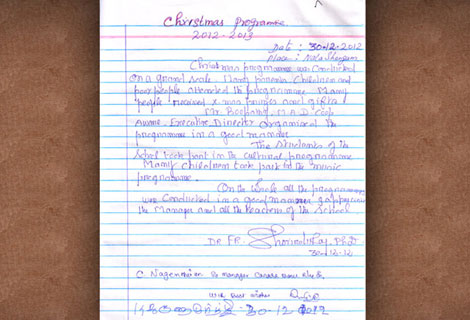 Christmas Programme
2012-2013
Date : 30-12-2012
Place :
Christmas programme was Conducted
On a grand scale. Many parents, Children and
poor people attended the programme. Many
people received x-mas and gifts
Mr.
Aware. Executive Director Organised the
programme in a good manner
The Students of the
School took part in the cultural programme
Many children took part in the music
programme.
On the whole all the programmes
were Conducted in a good manner. I appreciate
the Manager and all the teachers of the School
Dr. FR. Ph.D
30-12-12
C. Nagendran Manager
with best wishes
30-12-2012